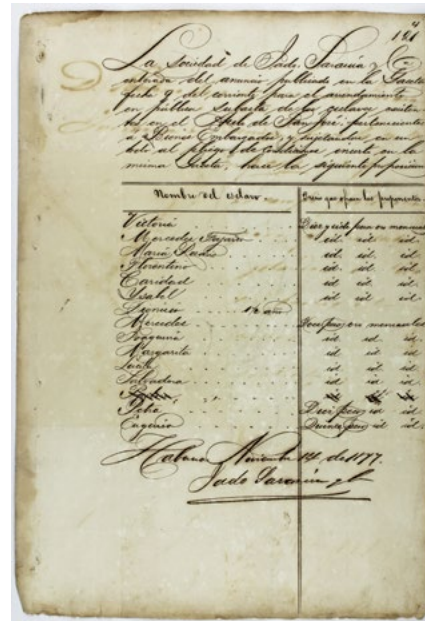 4
121
La Sociedad de Jado, Saracúa y Cia
enterada del anuncio publicado en la Gaceta
fecha 9 del corriente para el arrendamiento
en pública subasta de los esclavos existen
tes en el de San José, pertenecientes
a Bienes Embargados, y sujetandose en un
todo al pliego de Condiciones inserto en la
misma Gaceta, hace la siguiente proposicion
Nombre del esclavo. Precio que ofrecen los proponentes.
Victoria Diez y siete pesos en mensuales
Mercedes id. id. id.
Maria id. id. id.
Florentino id. id. id.
Caridad id. id. id.
Ysabel id. id. id.
Dionicio año
Mercedes pesos mensuales
Joaquina id id id
Margarita id id id
Lucila id id id
Salvadora id id id
id id id
Delia Diez pesos id id.
Eugenia pesos id id.
Habana Noviembre 14 de 1877.
Jado Saracúa y Ca